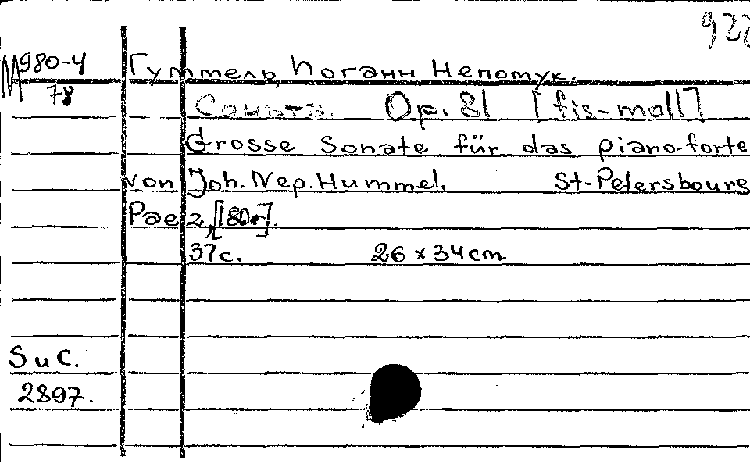 922
M980-4
78
Гуммель, Иоганн Непомук.
Соната. Op. 81 [fis-moll]
Grosse Sonate für das piano-forte
von Joh. Nep. Hummel. St-Petersbourg
Paez,
37c. 26 x 34cm
SuC.
2897.